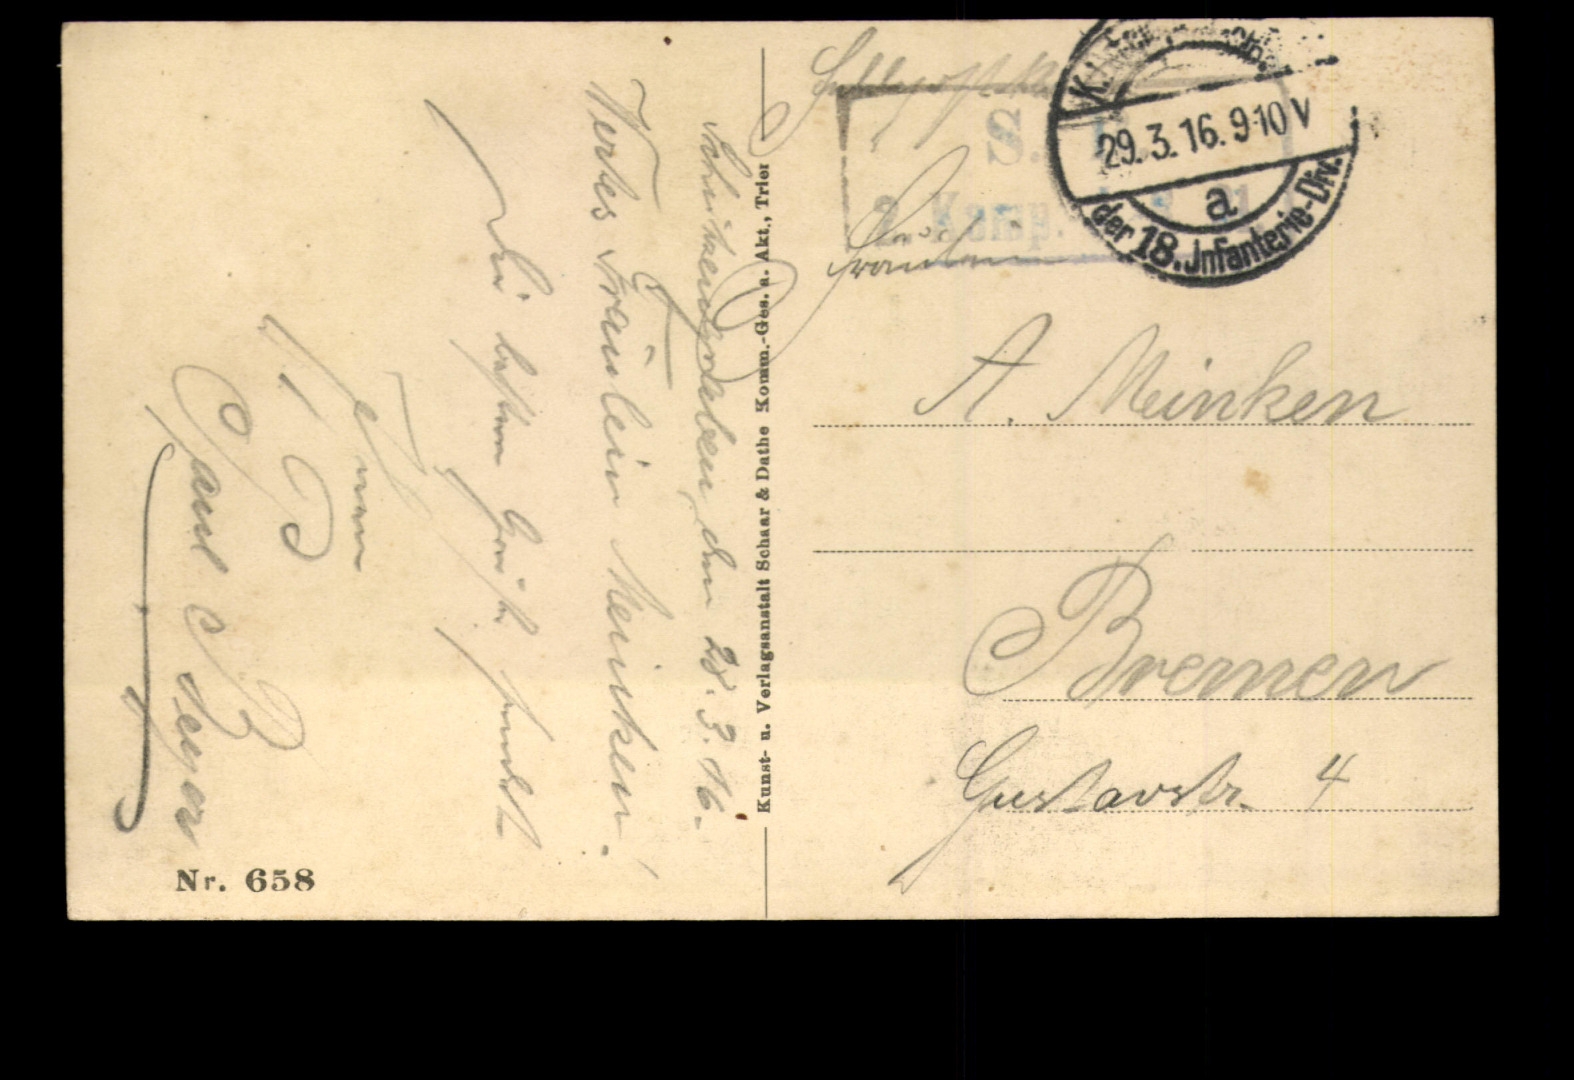 Schützengraben, den 28.3.16.
Wertes Fräulein Meinken!
Die besten Grüße sendet
Paul Beyer
Nr. 658
Kunst- u. Verlagsanstalt Schaar & Dathe Komm.-Ges. a. Akt., Trier
Feldpostkarte
S. B.
2. Komp.
29.3.16.9-10V
a
der 18. Infanterie-Div.
Fräulein
A. Meinken
Bremen
Gustavstr. 4